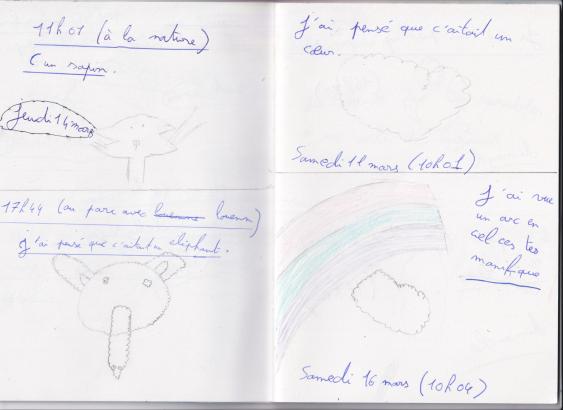 11h01 (à la nature)
C'un sapin.
jeudi 14 mars
17h44 (au parc avec louenn)
j'ai pensé que c'aitait un eliphant.
J'ai pensé que c'aitait un
cœur.
Samedi 11 mars (10h01)
J'ai vue
un arc en
ciel ces tes
manifique
Samedi 16 mars (10h04)